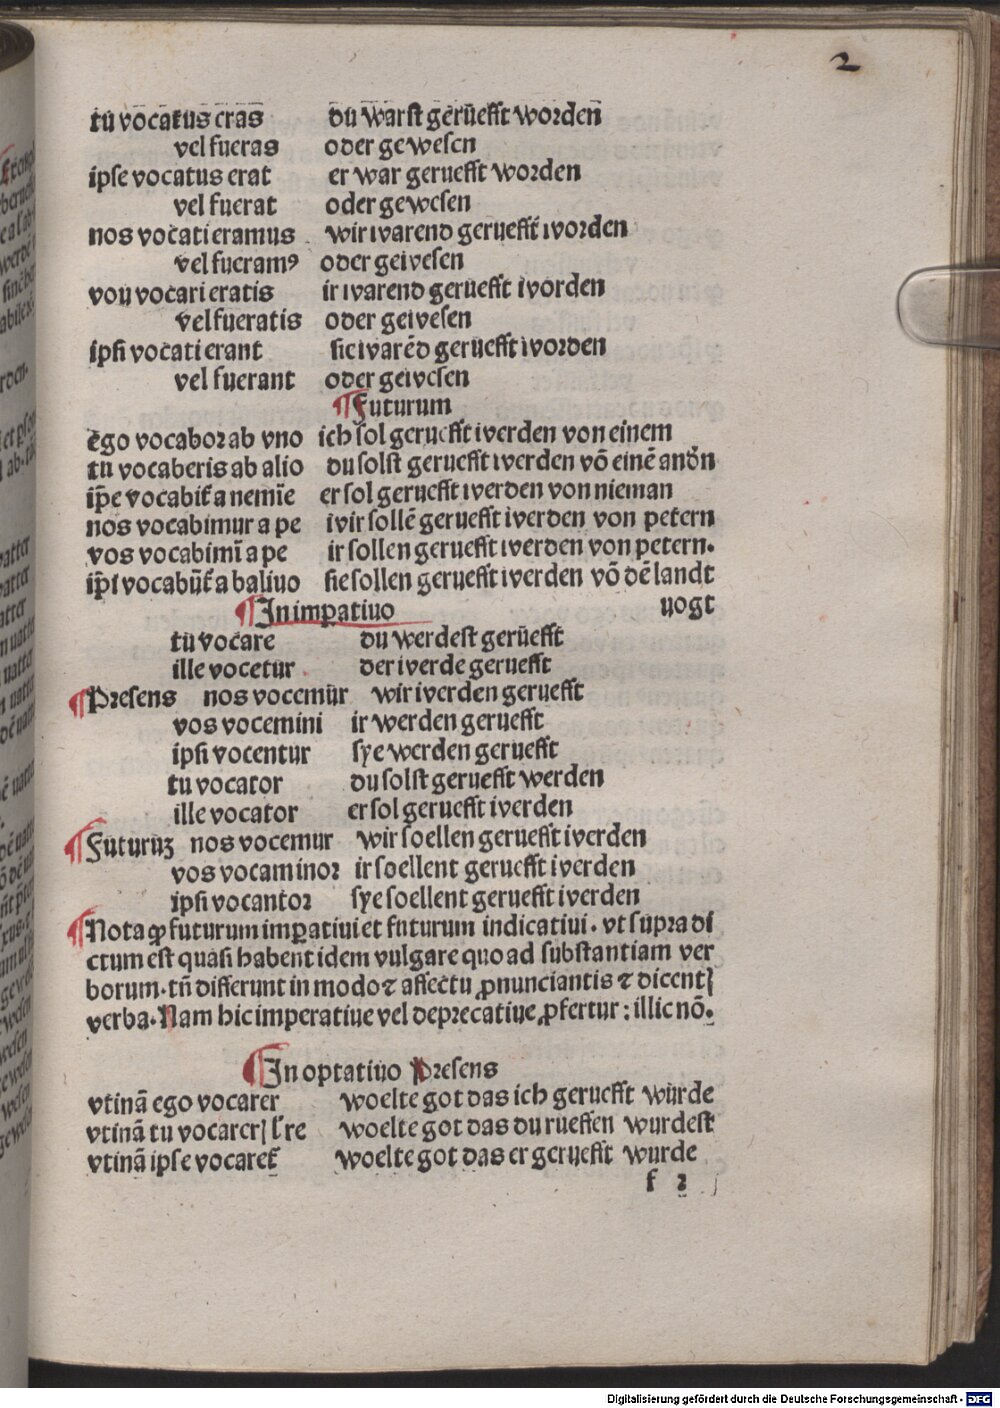 2
tu vocatus eras du warst geruefft worden
vel fueras oder gewesen
ipse vocatus erat er war geruefft worden
vel fuerat oder gewesen
nos vocati eramus wir warend geruefft worden
vel fueramꝯ oder gewesen
vou vocari eratis ir warend geruefft worden
vel fueratis oder gewesen
ipsi vocati erant sie warēd geruefft worden
vel fuerant oder gewesen
¶Futurum
ego vocabor ab vno ich sol geruefft werden von einem
tu vocaberis ab alio du solst geruefft werden vō einē andn̄
ip̄e vocabit̄ a nemīe er sol geruefft werden von nieman
nos vocabimur a pe wir sollē geruefft werden von petern
vos vocabimī a pe ir sollen geruefft werden von petern.
ip̄i vocabūt̄ a baliuo sie sollen geruefft werden vō dē landt
¶In imꝑatiuo uogt
tu vocare du werdest gerüefft
ille vocetur der werde geruefft
¶Presens nos vocemur wir werden geruefft
vos vocemini ir werden geruefft
ipsi vocentur sye werden geruefft
tu vocator du solst geruefft werden
ille vocator er sol geruefft werden
¶Futurūꝫ nos vocemur wir soellen geruefft werden
vos vocaminor ir soellent geruefft werden
ipsi vocantor sye soellent geruefft werden
¶Nota ꝙ futurum imꝑatiui et futurum indicatiui. vt supra di
ctum est quasi habent idem vulgare quo ad substantiam ver
borum. tn̄ differunt in modo ⁊ affectu ꝓnunciantis ⁊ dicentꝭ
verba. Nam hic imperatiue vel deprecatiue ꝓfertur: illic nō.
¶In optatiuo Presens
vtinā ego vocarer woelte got das ich geruefft würde
vtinā tu vocarerꝭ ł re woelte got das du rueffen wurdest
vtinā ipse vocaret̄ woelte got das er geruefft wurde
f 2
Digitalisierung gefördert durch die Deutsche Forschungsgemeinschaft - DFG